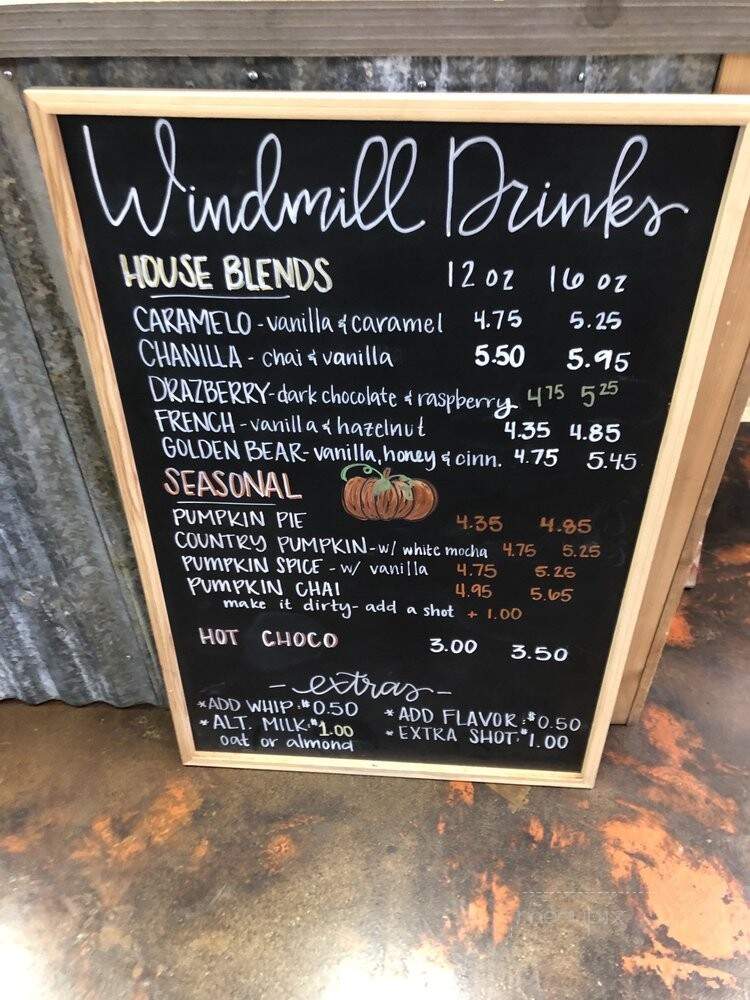 Windmill Drinks
HOUSE BLENDS 12 oz 16 oz
CARAMELO - vanilla & caramel 4.75 5.25
CHANILLA - chai & vanilla 5.50 5.95
DRAZBERRY - dark chocolate & raspberry 4.75 5.25
FRENCH - vanilla & hazelnut 4.35 4.85
GOLDEN BEAR - vanilla, honey & cinn. 4.75 5.45
SEASONAL
PUMPKIN PIE 4.35 4.85
COUNTRY PUMPKIN - w/ white mocha 4.75 5.25
PUMPKIN SPICE - w/ vanilla 4.75 5.25
PUMPKIN CHAI 4.95 5.65
make it dirty - add a shot + 1.00
HOT CHOCO 3.00 3.50
- extras -
*ADD WHIP: $0.50 *ADD FLAVOR: $0.50
*ALT. MILK: $1.00 *EXTRA SHOT: $1.00
oat or almond